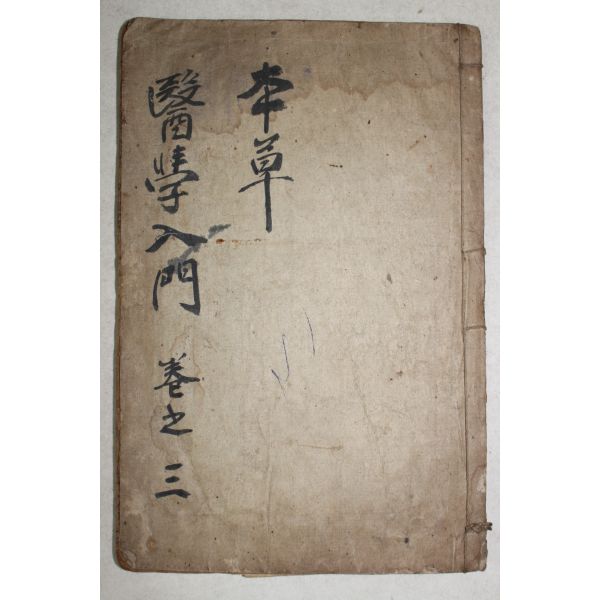 本草
醫學入門 卷之三